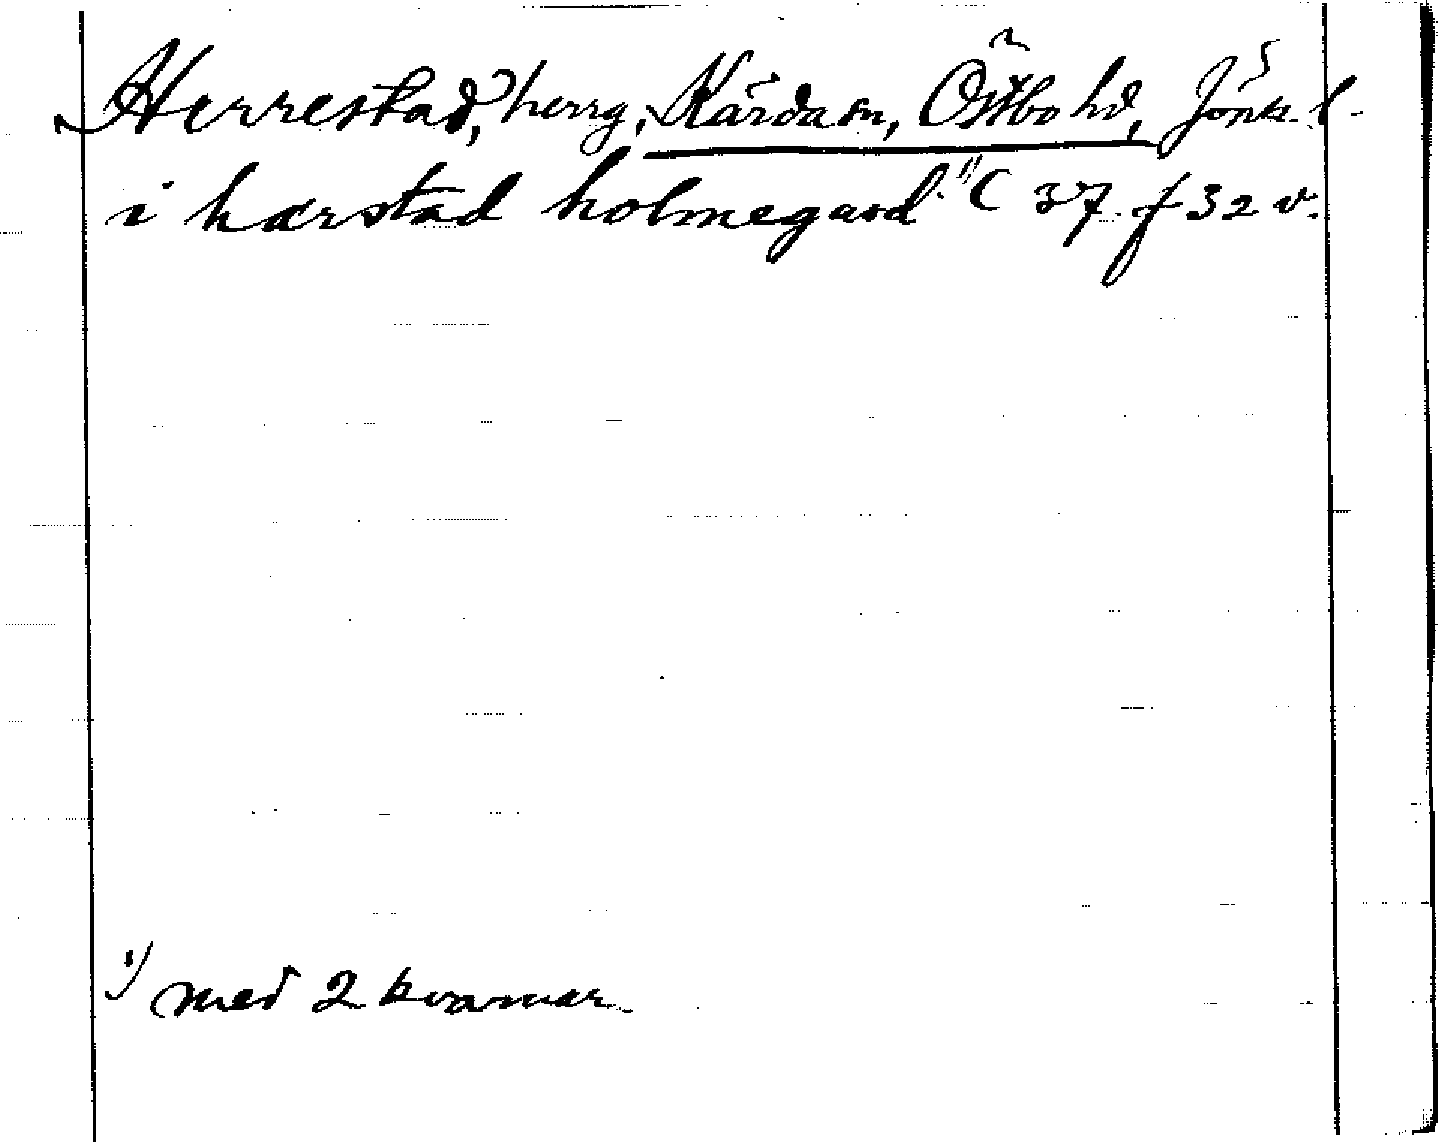 Herrestad, herrg, Kärda sn, Östbo hd, Jönk. l.
i harstad holmegard ¹⁾ C 37 f 32 v.
¹⁾ med 2 kvarnar